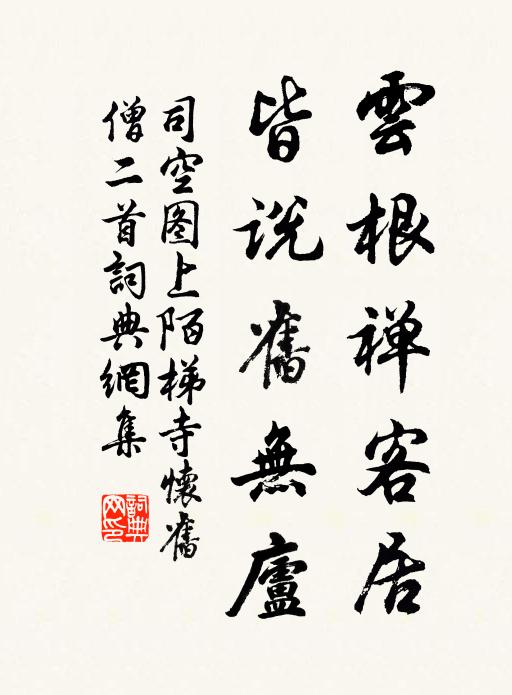 雲根禅客居
皆说舊無廬
司空图上陌梯寺懷舊
僧二首詞典網集
詞典网印